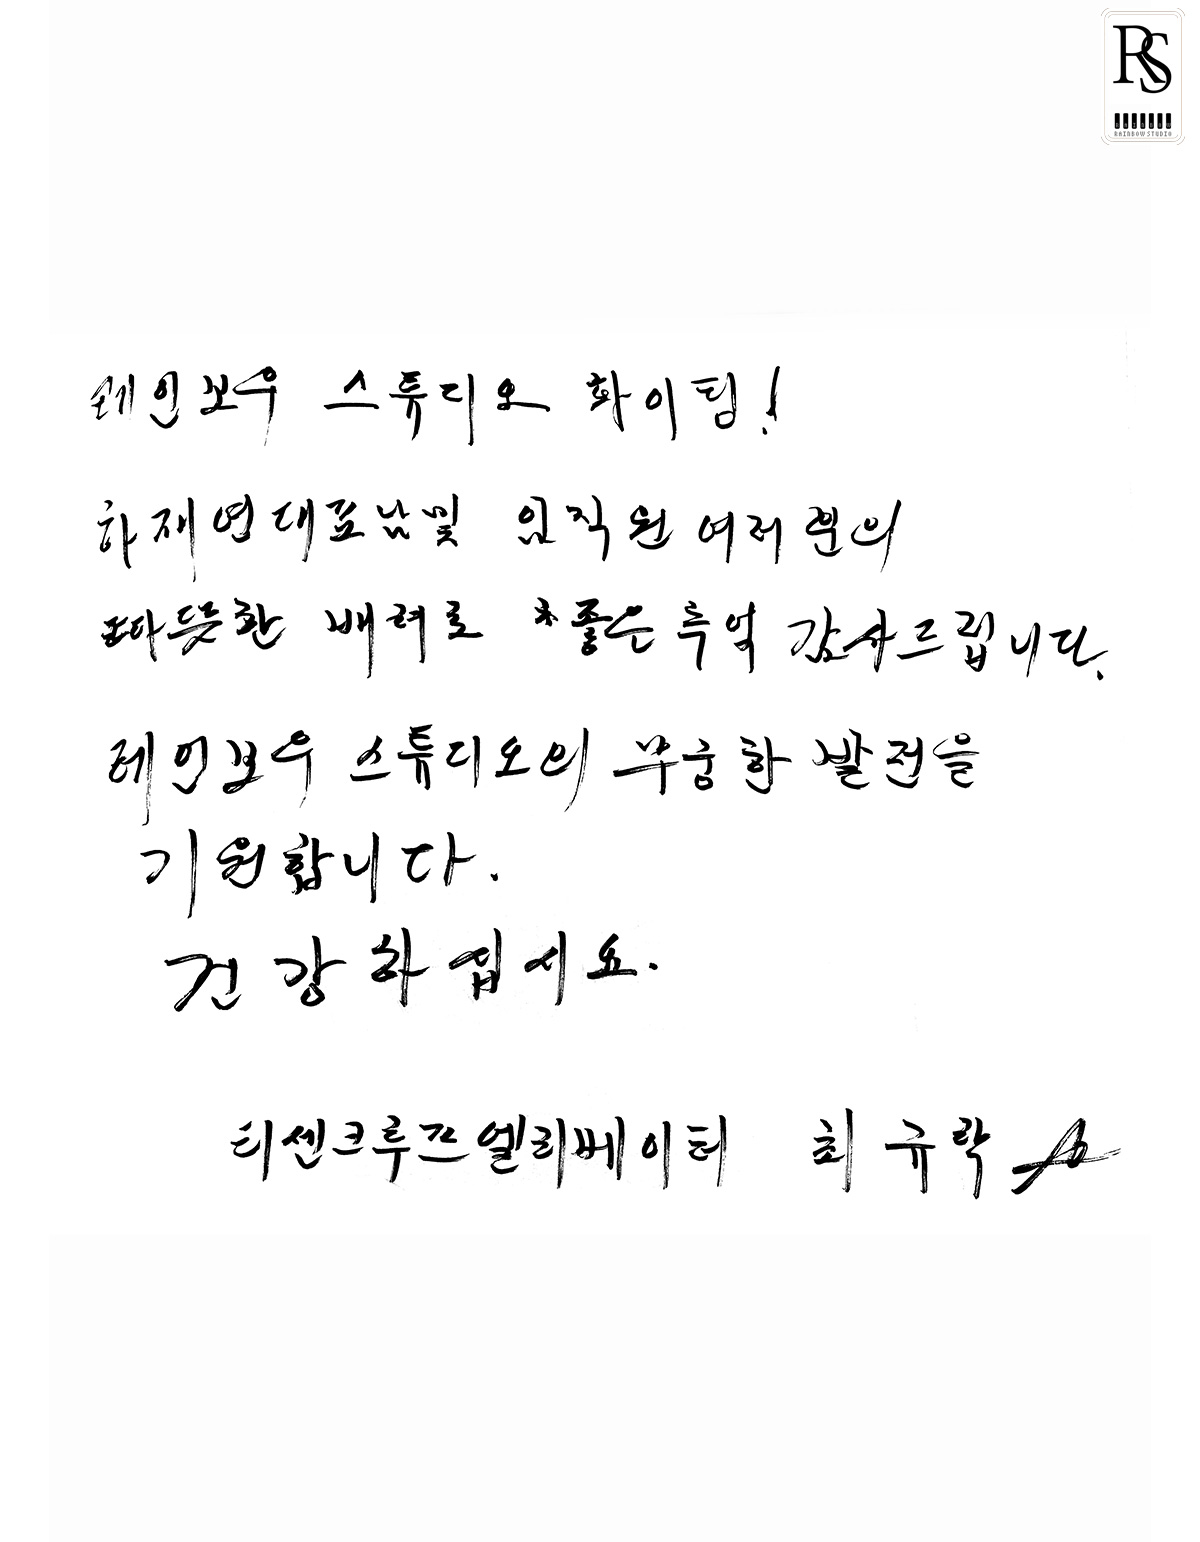 RS
RAINBOW STUDIO
레인보우 스튜디오 화이팅!
하재연대표님및 임직원 여러분의
따뜻한 배려로 좋은 추억 감사드립니다.
레인보우 스튜디오의 무궁한 발전을
기원합니다.
건강하십시요.
티센크루프엘리베이터 최규락